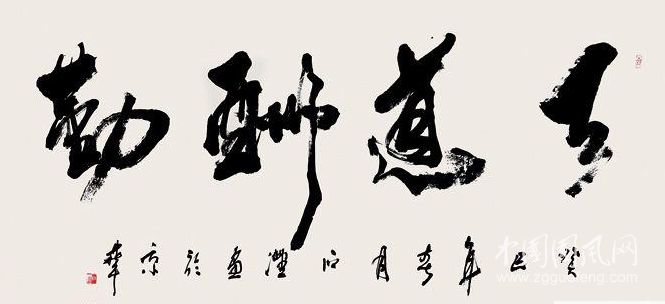 天道酬勤
癸巳年春月於京華
中国国风网
www.zgguofeng.com